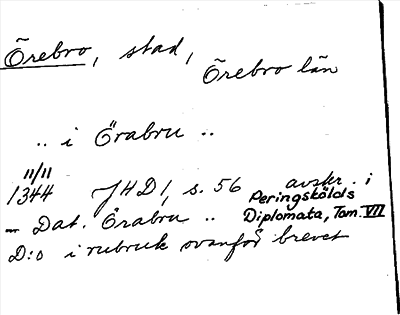 Örebro, stad,
Örebro län
.. i Örabru ..
11/11
1344 JHD 1, s. 56 avskr. i
Peringskölds
— Dat. Örabru .. Diplomata, Tom. VII
D:o i rubrik ovanför brevet